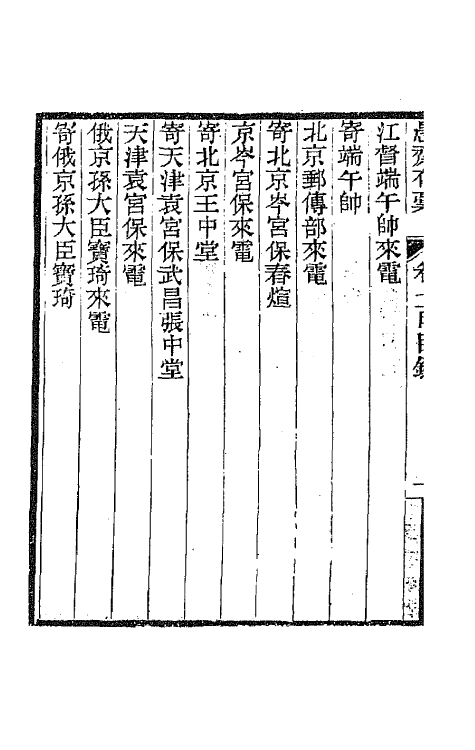 江督端午帥來電
寄端午帥
北京郵傳部來電
寄北京岑宮保春煊
京岑宮保來電
寄北京王中堂
寄天津袁宮保武昌張中堂
天津袁宮保來電
俄京孫大臣寶琦來電
寄俄京孫大臣寶琦